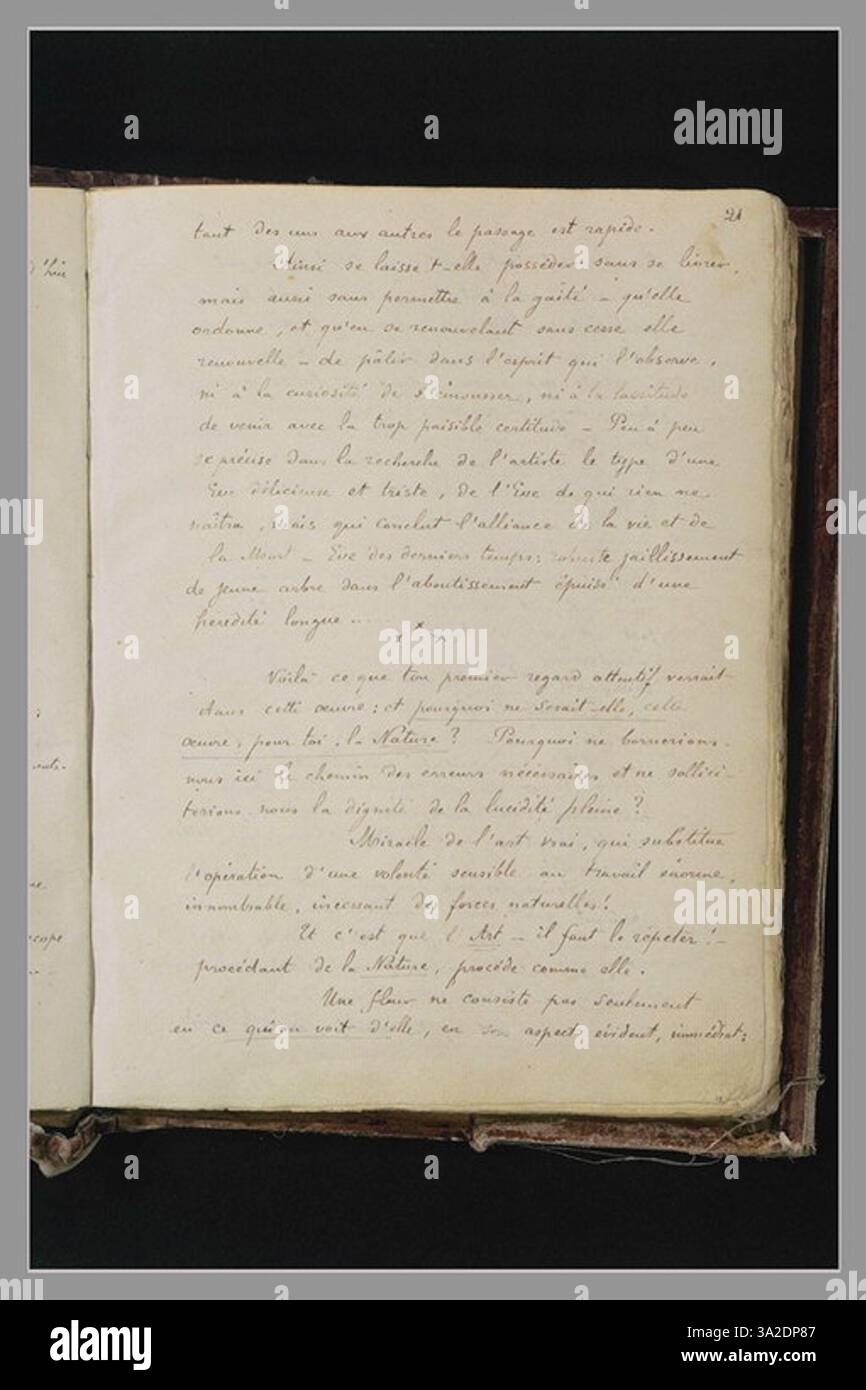 21
tant des uns aux autres le passage est rapide.
Ainsi se laisse t-elle posséder sans se livrer,
mais aussi sans permettre à la gaité – qu'elle
ordonne, et qu'en se renouvelant sans cesse elle
renouvelle – de pâlir dans l'esprit qui l'observe,
ni à la curiosité de s'émousser, ni à la lassitude
de venir avec la trop paisible certitude – Peu à peu
se précise dans la recherche de l'artiste le type d'une
Eve délicieuse et triste, de l'Eve de qui rien ne
naîtra, mais qui conclut l'alliance de la vie et de
la Mort – Eve des derniers temps: robuste jaillissement
de jeune arbre dans l'aboutissement épuisé d'une
hérédité longue...
x x x
Voilà ce que ton premier regard attentif verrait
dans cette œuvre: et pourquoi ne serait-elle, cette
œuvre, pour toi, la Nature? Pourquoi ne bornerions-
nous ici le chemin des erreurs nécessaires et ne sollici-
terions-nous la dignité de la lucidité pleine?
Miracle de l'art vrai, qui substitue
l'opération d'une volonté sensible au travail énorme,
innombrable, incessant des forces naturelles!
Et c'est que l'Art – il faut le répéter! –
procédant de la Nature, procède comme elle.
Une fleur ne consiste pas seulement
en ce qu'on voit d'elle, en son aspect évident, immédiat:
d'hui
scope
a alamy
alamy
3A2DP87
www.alamy.com